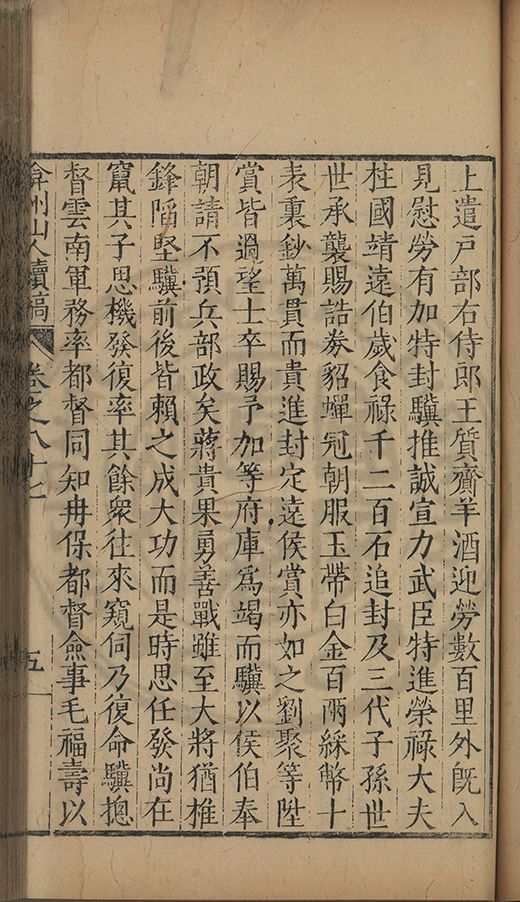 上遣戸部右侍郎王質齎羊酒迎勞數百里外旣入
見慰勞有加特封驥推誠宣力武臣特進榮祿大夫
柱國靖遠伯歲食祿千二百石追封及三代子孫世
世承襲賜誥券貂蟬冠朝服玉帶白金百兩綵幣十
表裏鈔萬貫而貴進封定逺侯賞亦如之劉聚等陞
賞皆過望士卒賜予加等府庫爲竭而驥以侯伯奉
朝請不預兵部政矣蔣貴果勇善戰雖至大將猶推
鋒陷堅驥前後皆賴之成大功而是時思任發尚在
竄其子思機發復率其餘衆往來窺伺乃復命驥摠
督雲南軍務率都督同知冉保都督僉事毛福壽以
弇州山人續稿 卷之八十七 五